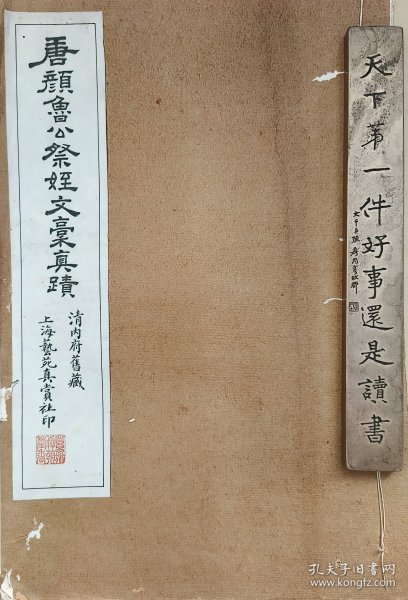 唐顏魯公祭姪文稾真蹟
清內府舊藏
上海藝苑真賞社印
天下第一件好事還是讀書
孔夫子旧书网
www.kongfz.com